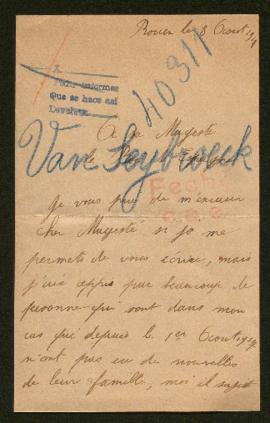 Rouen le 8 Aout
2
Pedir informes
Que se hace así
Devolver
40311
A sa Majesté
le
Van Seybroeck
Je vous prie de m'excuser
cher Majesté si je me
permets de vous écrire, mais
j'ais appris par beaucoup de
personne qui sont dans mon
cas qui depuis le 1er Aout 1914
n'ont pas eu de nouvelles
de leur famille, moi il